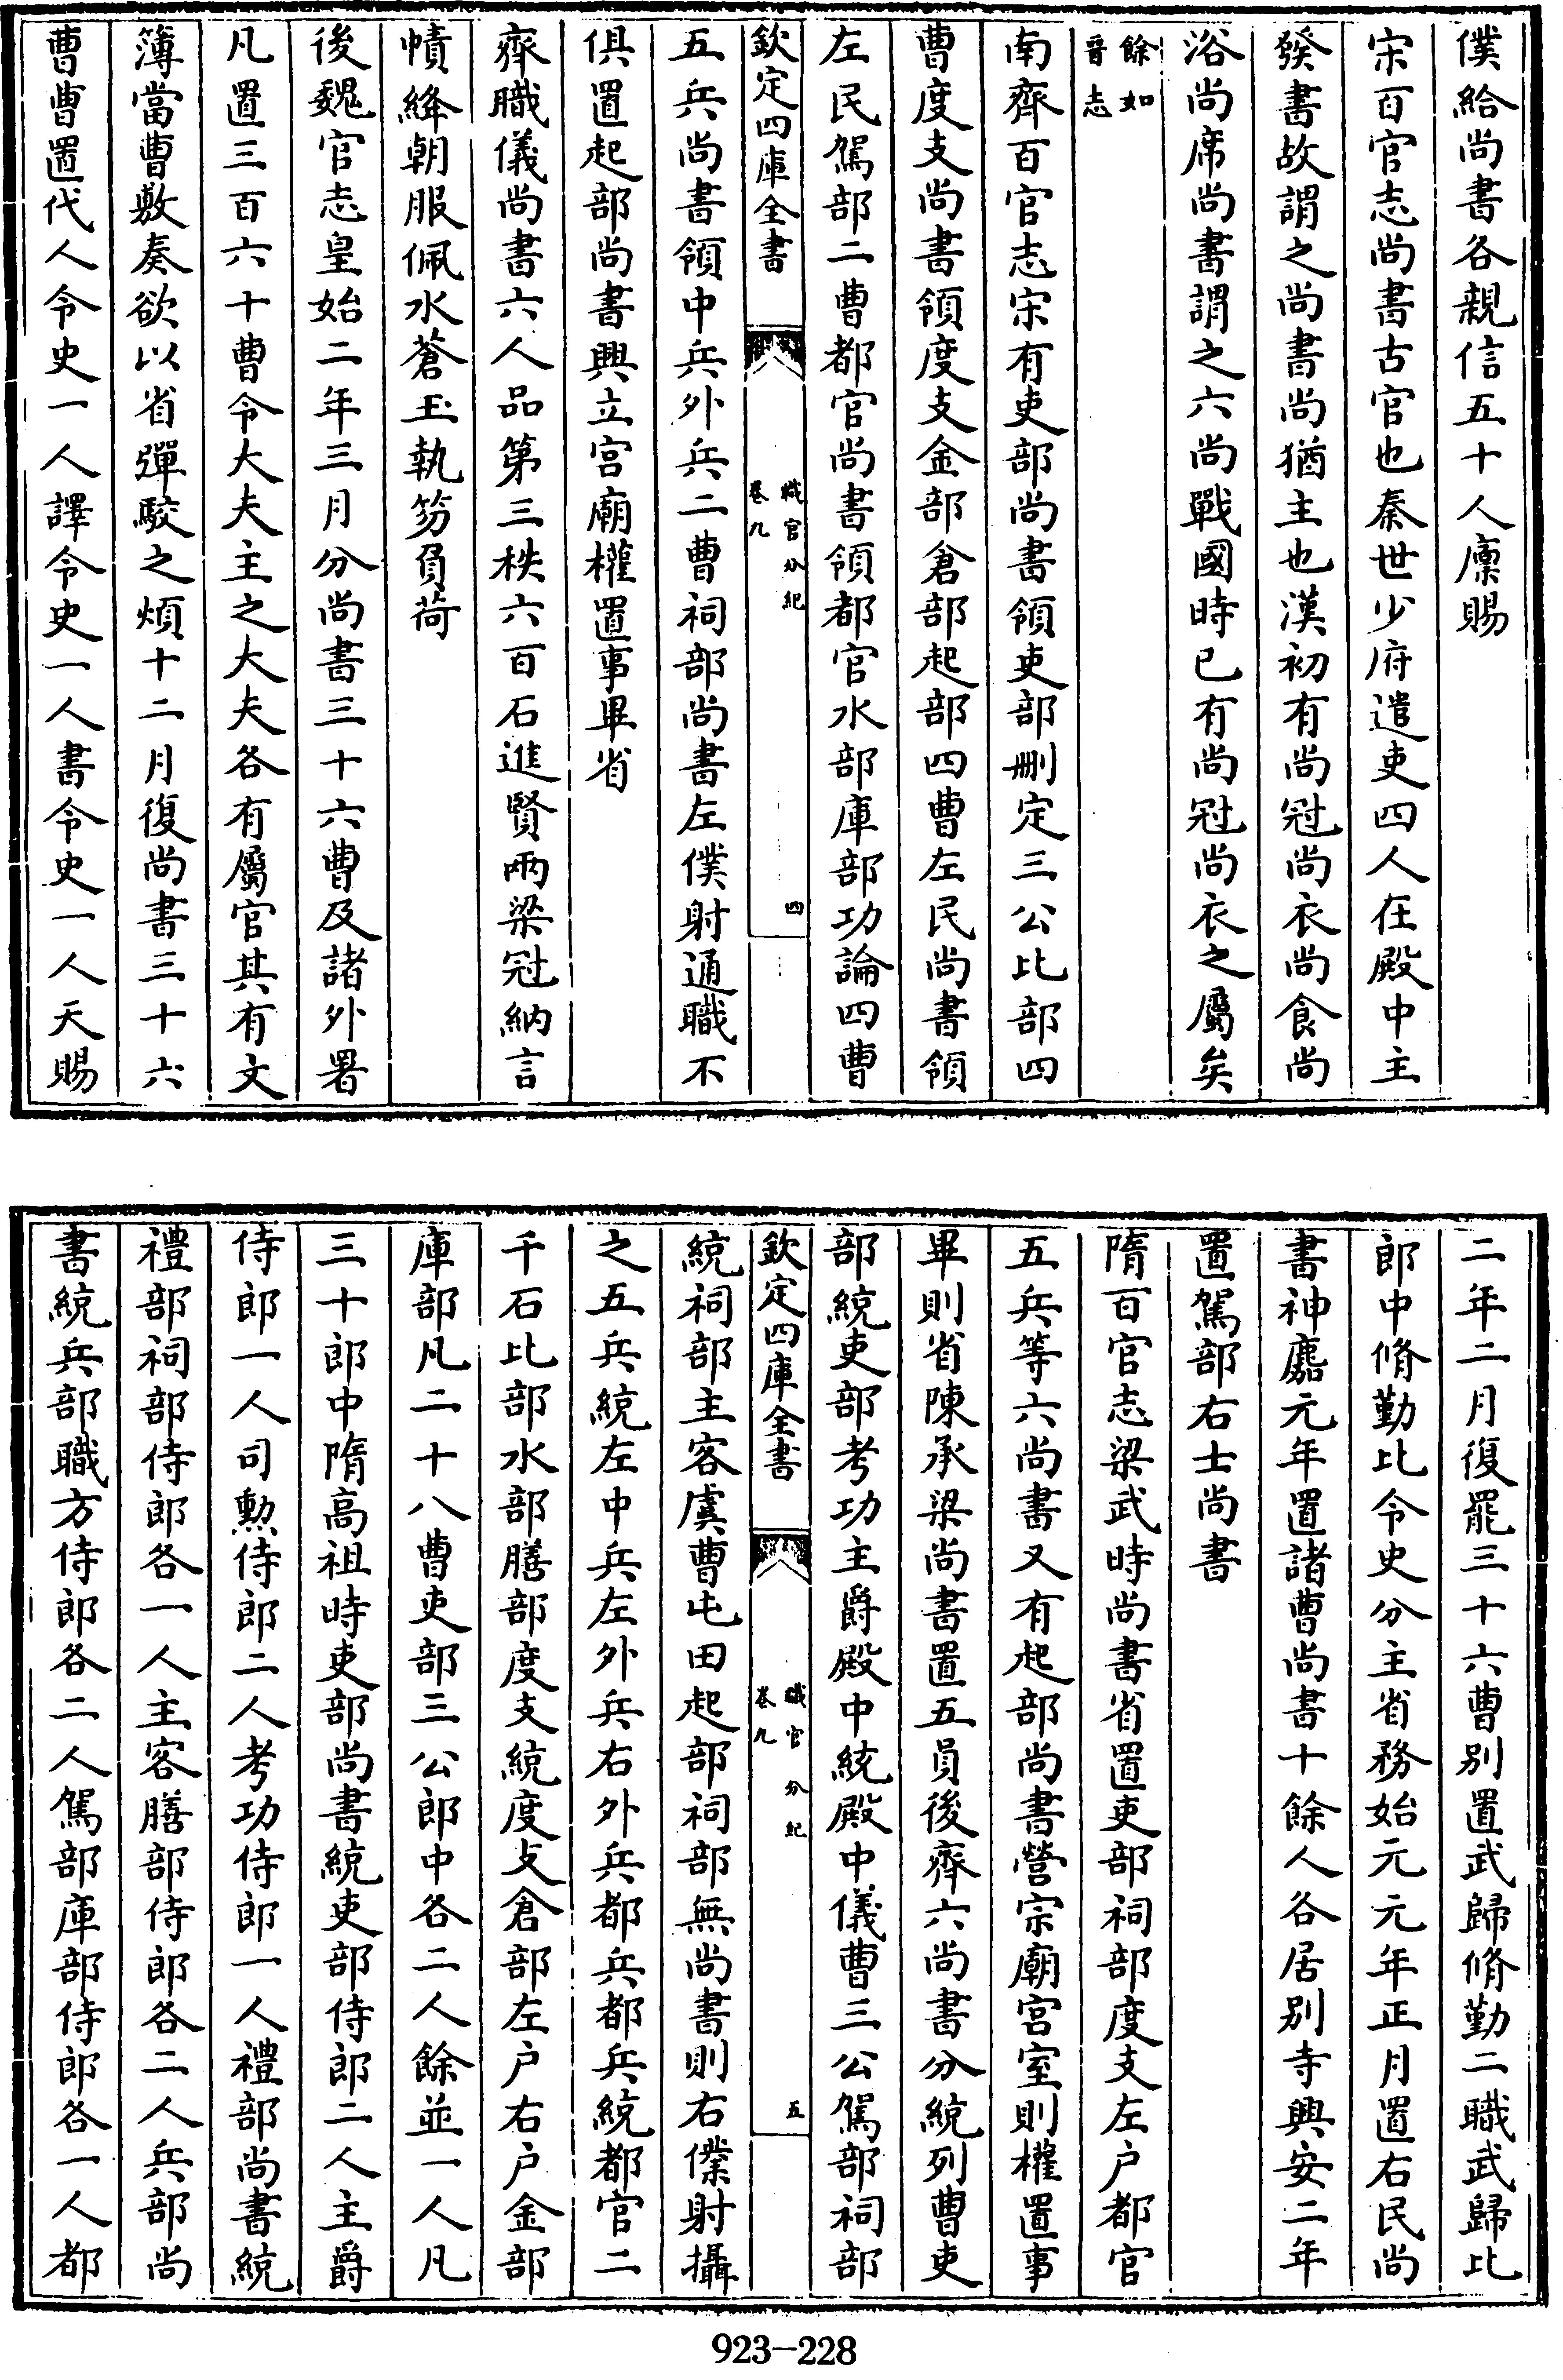 僕給尚書各親信五十人廩賜
宋百官志尚書古官也秦世少府遣吏四人在殿中主
發書故謂之尚書尚猶主也漢初有尚冠尚衣尚食尚
浴尚席尚書謂之六尚戰國時已有尚冠尚衣之屬矣
餘如
晉志
南齊百官志宋有吏部尚書領吏部刪定三公比部四
曹度支尚書領度支金部倉部起部四曹左民尚書領
左民駕部二曹都官尚書領都官水部庫部功論四曹
欽定四庫全書
職官分紀
卷九
四
五兵尚書領中兵外兵二曹祠部尚書左僕射通職不
俱置起部尚書興立宫廟權置事畢省
齊職儀尚書六人品第三秩六百石進賢兩梁冠納言
幘絳朝服佩水蒼玉執笏負荷
後魏官志皇始二年三月分尚書三十六曹及諸外署
凡置三百六十曹令大夫主之大夫各有屬官其有文
簿當曹敷奏欲以省彈駮之煩十二月復尚書三十六
曹曹置代人令史一人譯令史一人書令史一人天賜
二年二月復罷三十六曹别置武歸脩勤二職武歸比
郎中脩勤比令史分主省務始元元年正月置右民尚
書神䴥元年置諸曹尚書十餘人各居别寺興安二年
置駕部右士尚書
隋百官志梁武時尚書省置吏部祠部度支左户都官
五兵等六尚書又有起部尚書營宗廟宫室則權置事
畢則省陳承梁尚書置五員後齊六尚書分統列曹吏
部統吏部考功主爵殿中統殿中儀曹三公駕部祠部
欽定四庫全書
職官分紀
卷九
五
統祠部主客虞曹屯田起部祠部無尚書則右僕射攝
之五兵統左中兵左外兵右外兵都兵都兵統都官二
千石比部水部膳部度支統度支倉部左户右户金部
庫部凡二十八曹吏部三公郎中各二人餘並一人凡
三十郎中隋高祖時吏部尚書統吏部侍郎二人主爵
侍郎一人司勲侍郎二人考功侍郎一人禮部尚書統
禮部祠部侍郎各一人主客膳部侍郎各二人兵部尚
書統兵部職方侍郎各二人駕部庫部侍郎各一人都
923-228